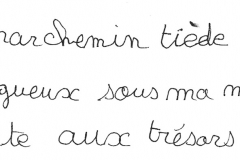 parchemin tiède
gueux sous ma m
te aux trésors